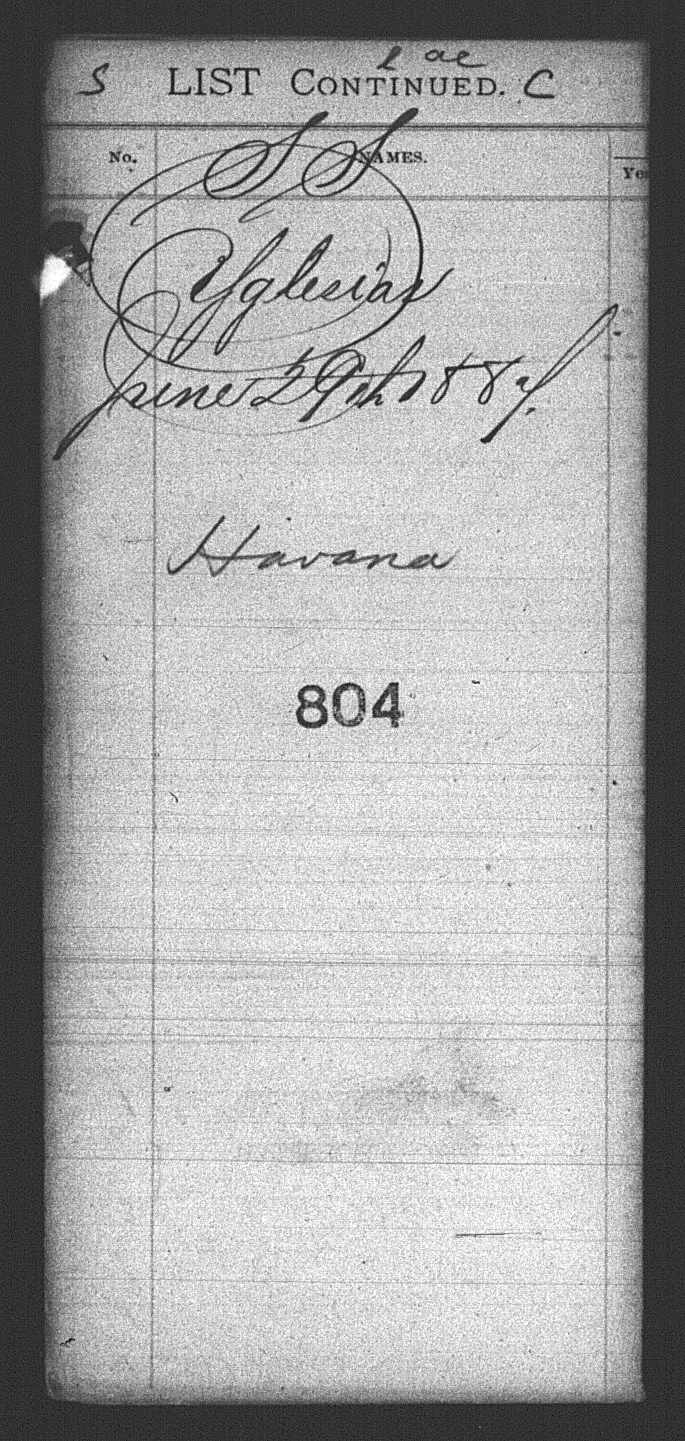 S LIST CONTINUED. C
No. NAMES.
SS
Yglesias
June 29th 1887.
Havana
804